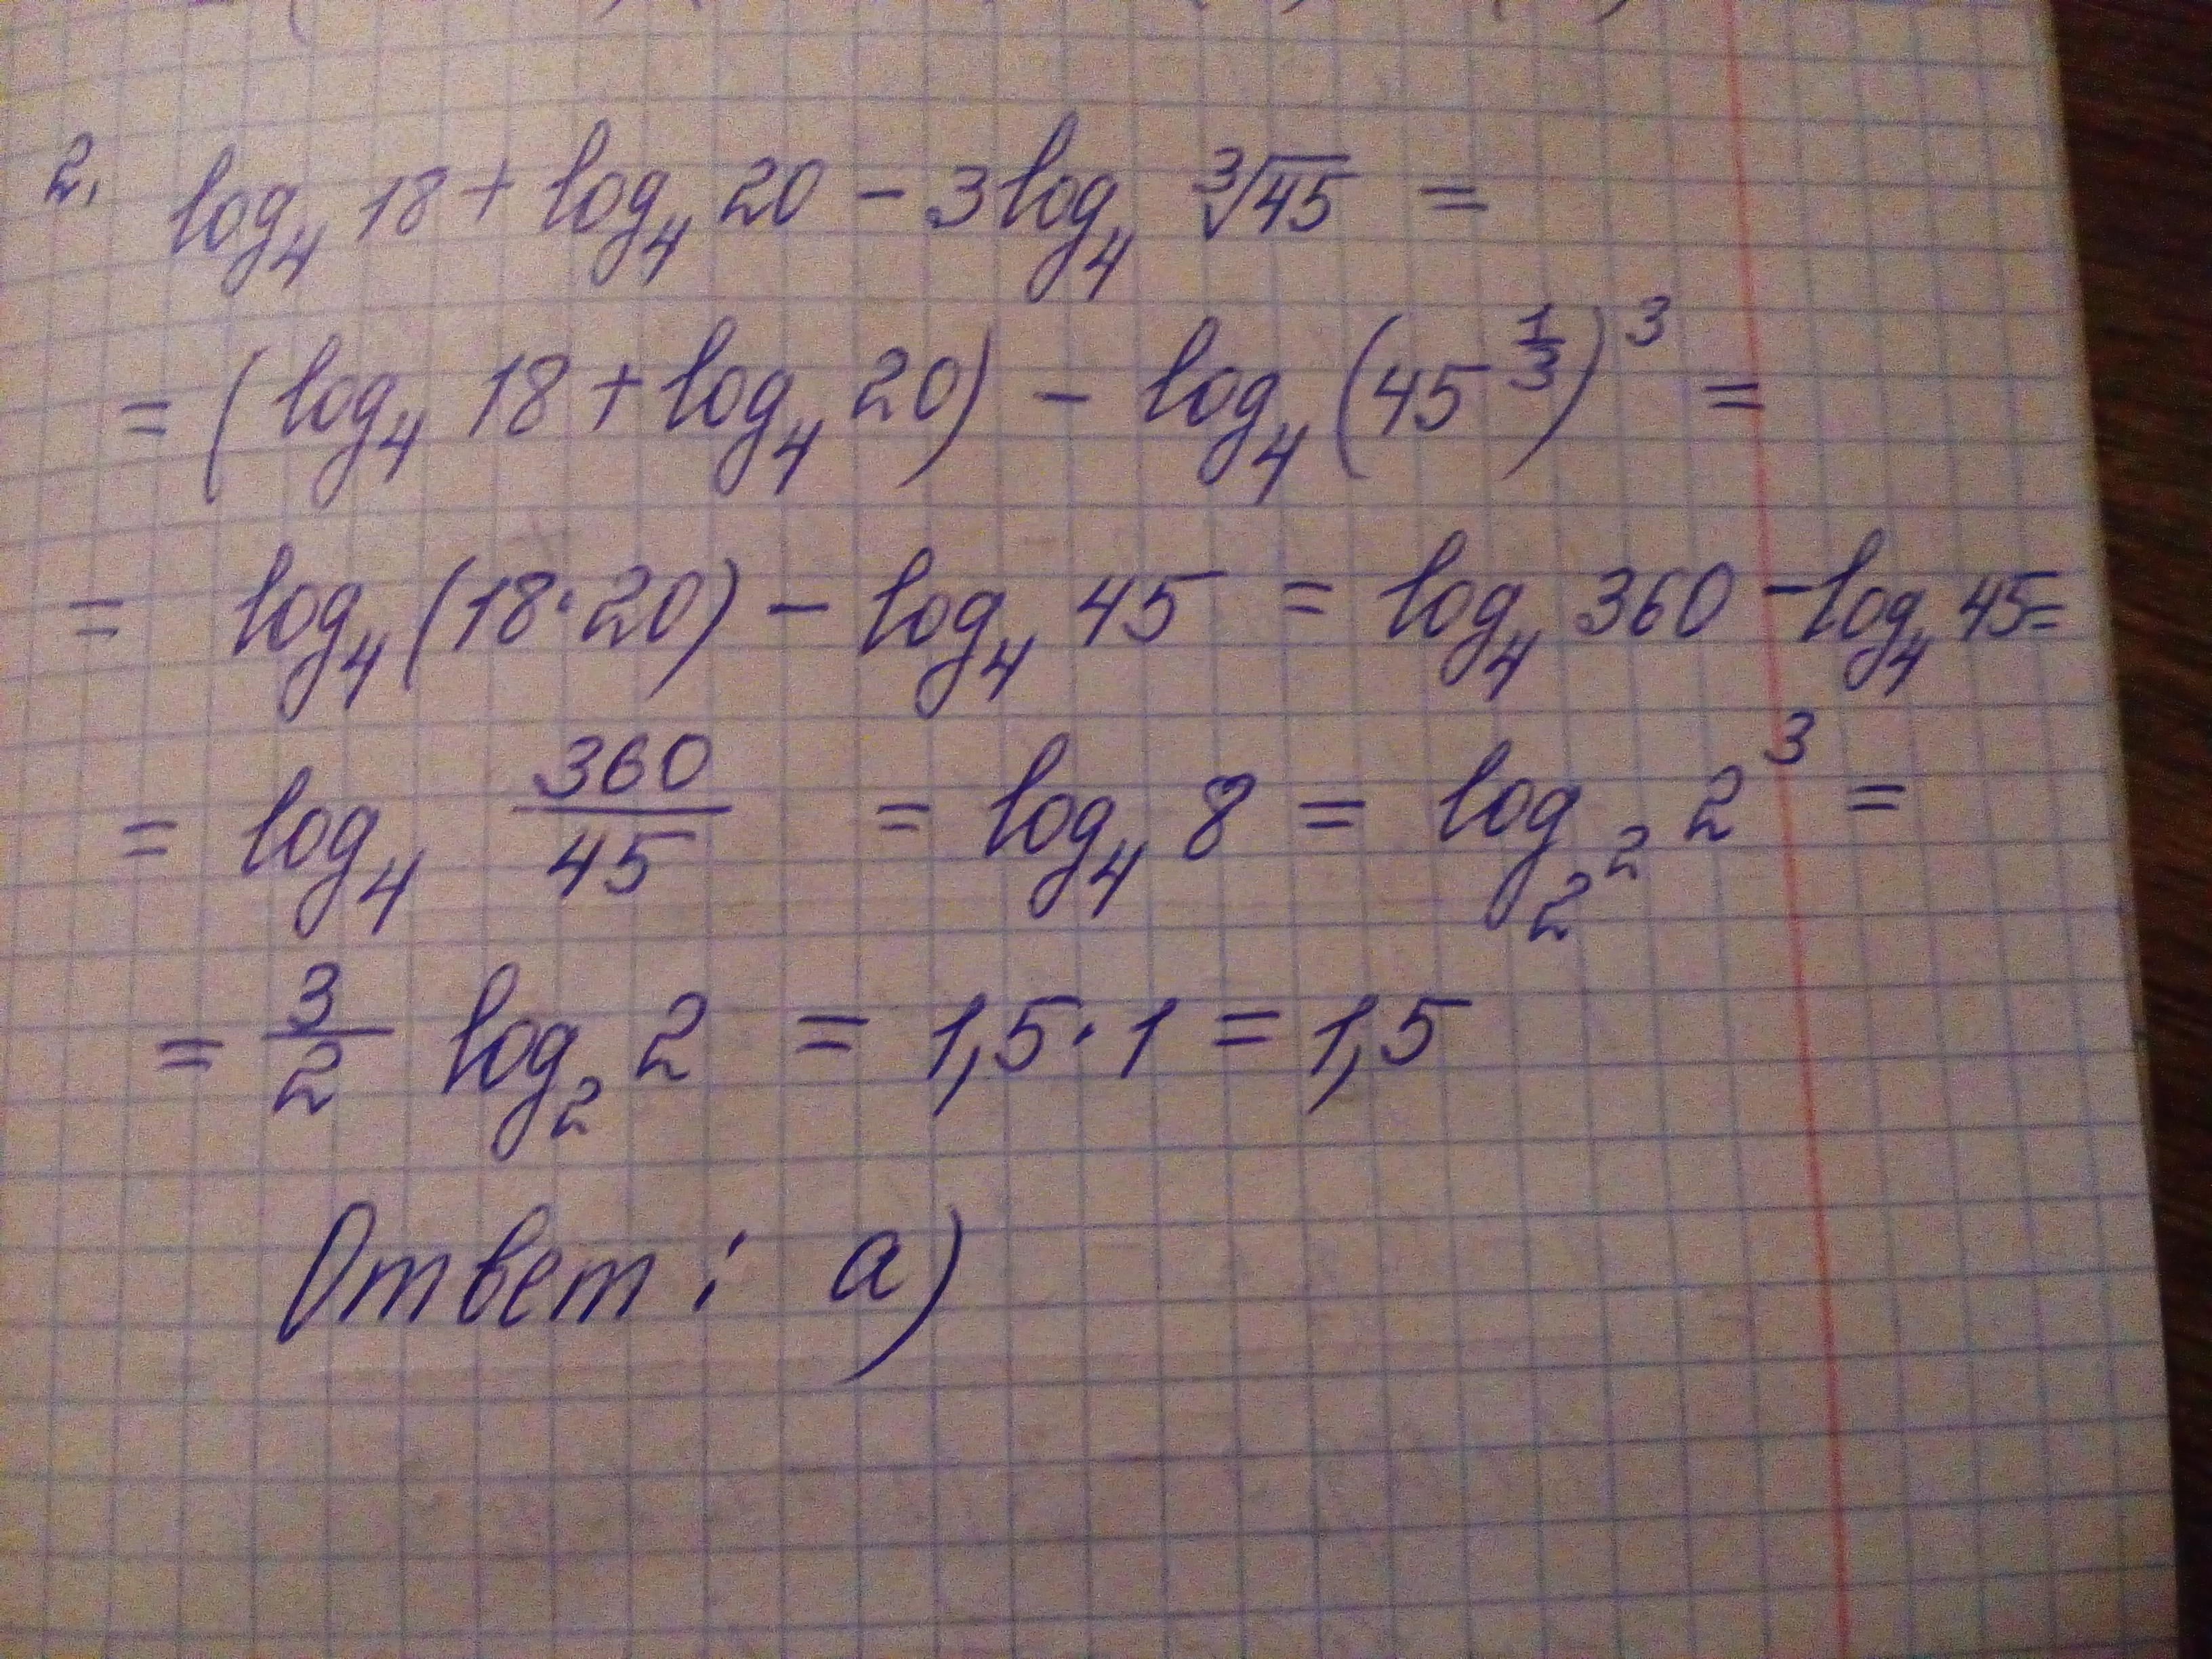 2. log₄ 18 + log₄ 20 - 3 log₄ ∛45 =
= (log₄ 18 + log₄ 20) - log₄ (45^(1/3))³ =
= log₄ (18·20) - log₄ 45 = log₄ 360 - log₄ 45 =
= log₄ 360/45 = log₄ 8 = log_(2²) 2³ =
= 3/2 log₂ 2 = 1,5·1 = 1,5
Ответ: а)